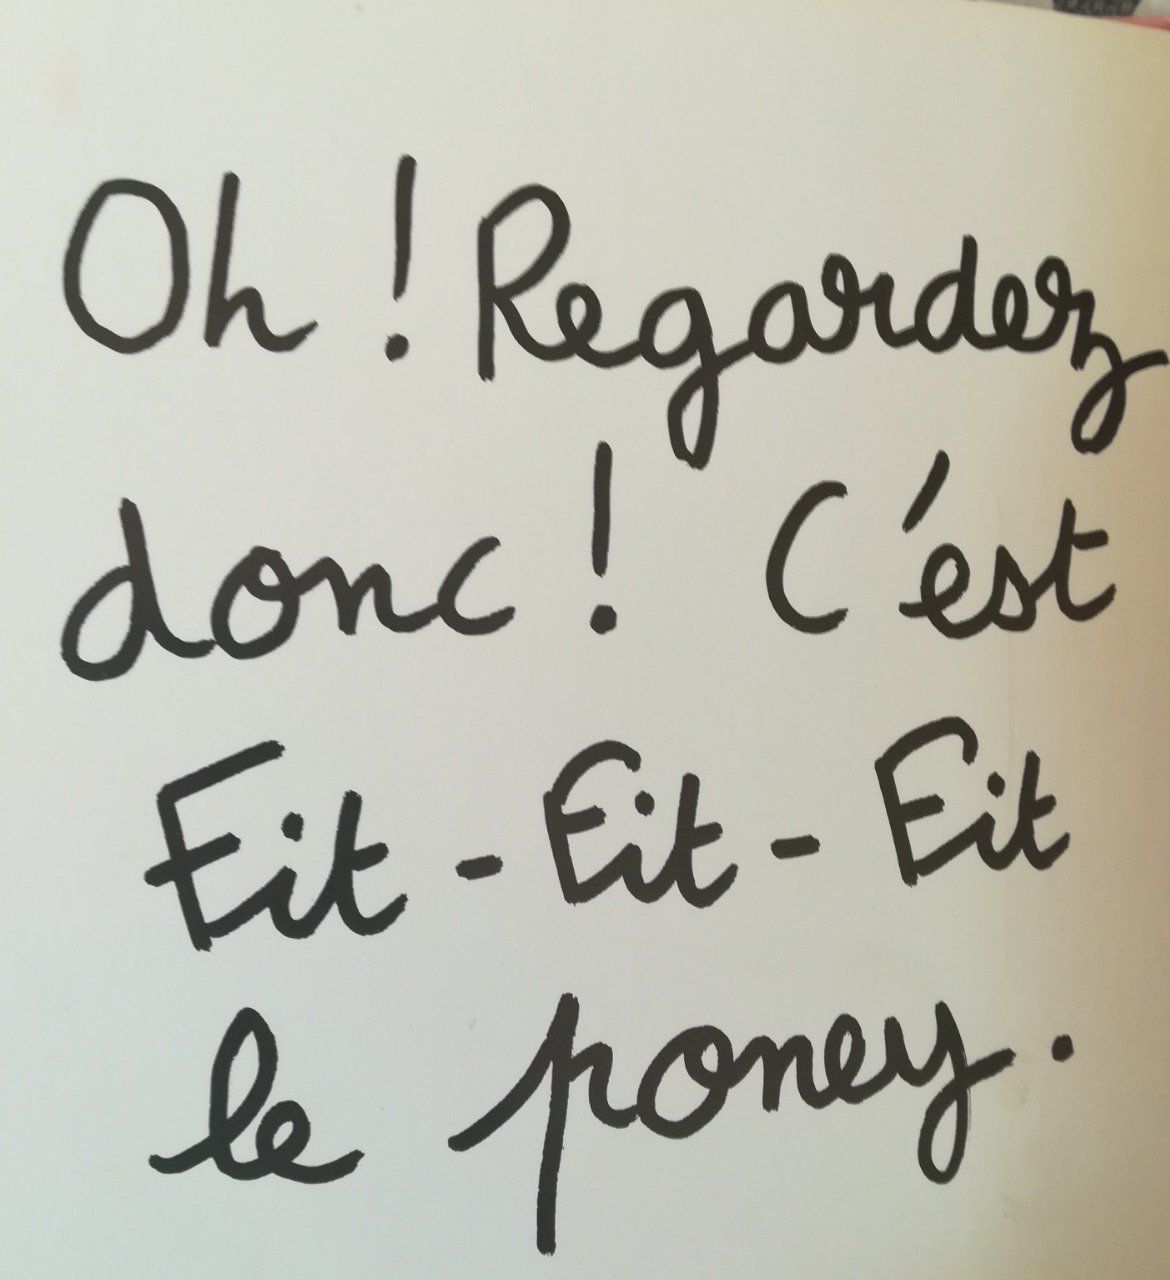 Oh ! Regardez
donc ! C'est
Eit - Eit - Eit
le poney.